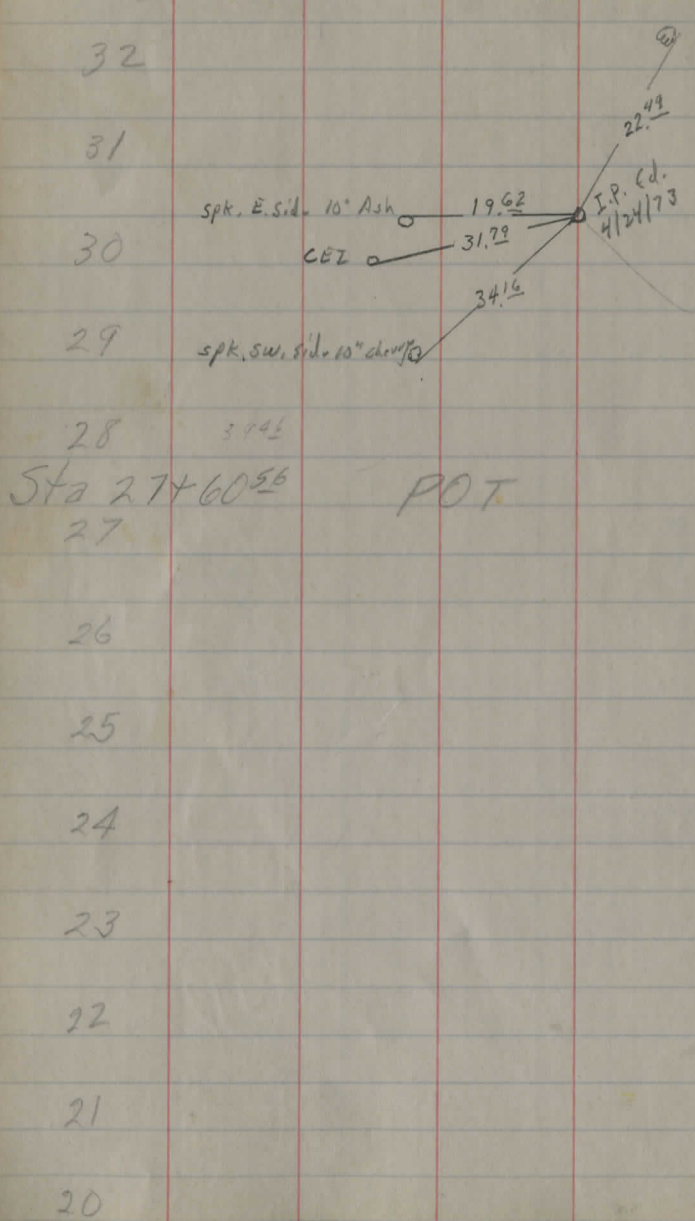 32
22.49
31
I.P. Fd.
4/24/73
spk. E. Sid. 10" Ash 19.62
30
CEI 31.79
34.16
29
spk, SW, Sid. 10" cherry
28
Sta 27+60 56 POT
27
26
25
24
23
22
21
20